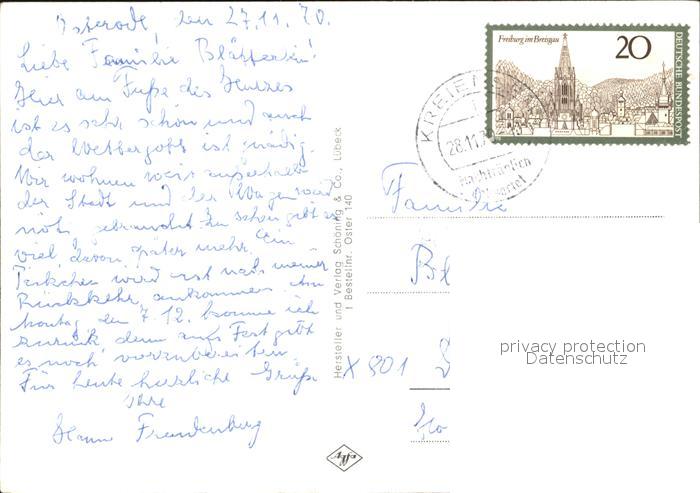 Osterode, den 27.11.70.
Liebe Familie
Hier am Fuße des Harzes
ist es sehr schön und auch
der Wettergott ist gnädig.
Wir wohnen weit außerhalb
der Stadt und der Wagen wird
gebraucht. Zu sehen gibt es
viel, davon später mehr. Ein
wird erst nach meiner
Rückkehr ankommen. Am
Montag den 7.12. komme ich
zurück, denn aufs Fest gibt
es noch vorzubereiten.
Für heute herzliche Grüße
Ihre
Hanna Frandenburg
Hersteller und Verlag Schöning & Co., Lübeck
1 Bestellnr. Oster 140
Agfa
Freiburg im Breisgau
20
DEUTSCHE BUNDESPOST
KREIE
28.11.7
nachträglich
entwertet
Familie
X 801
privacy protection
Datenschutz